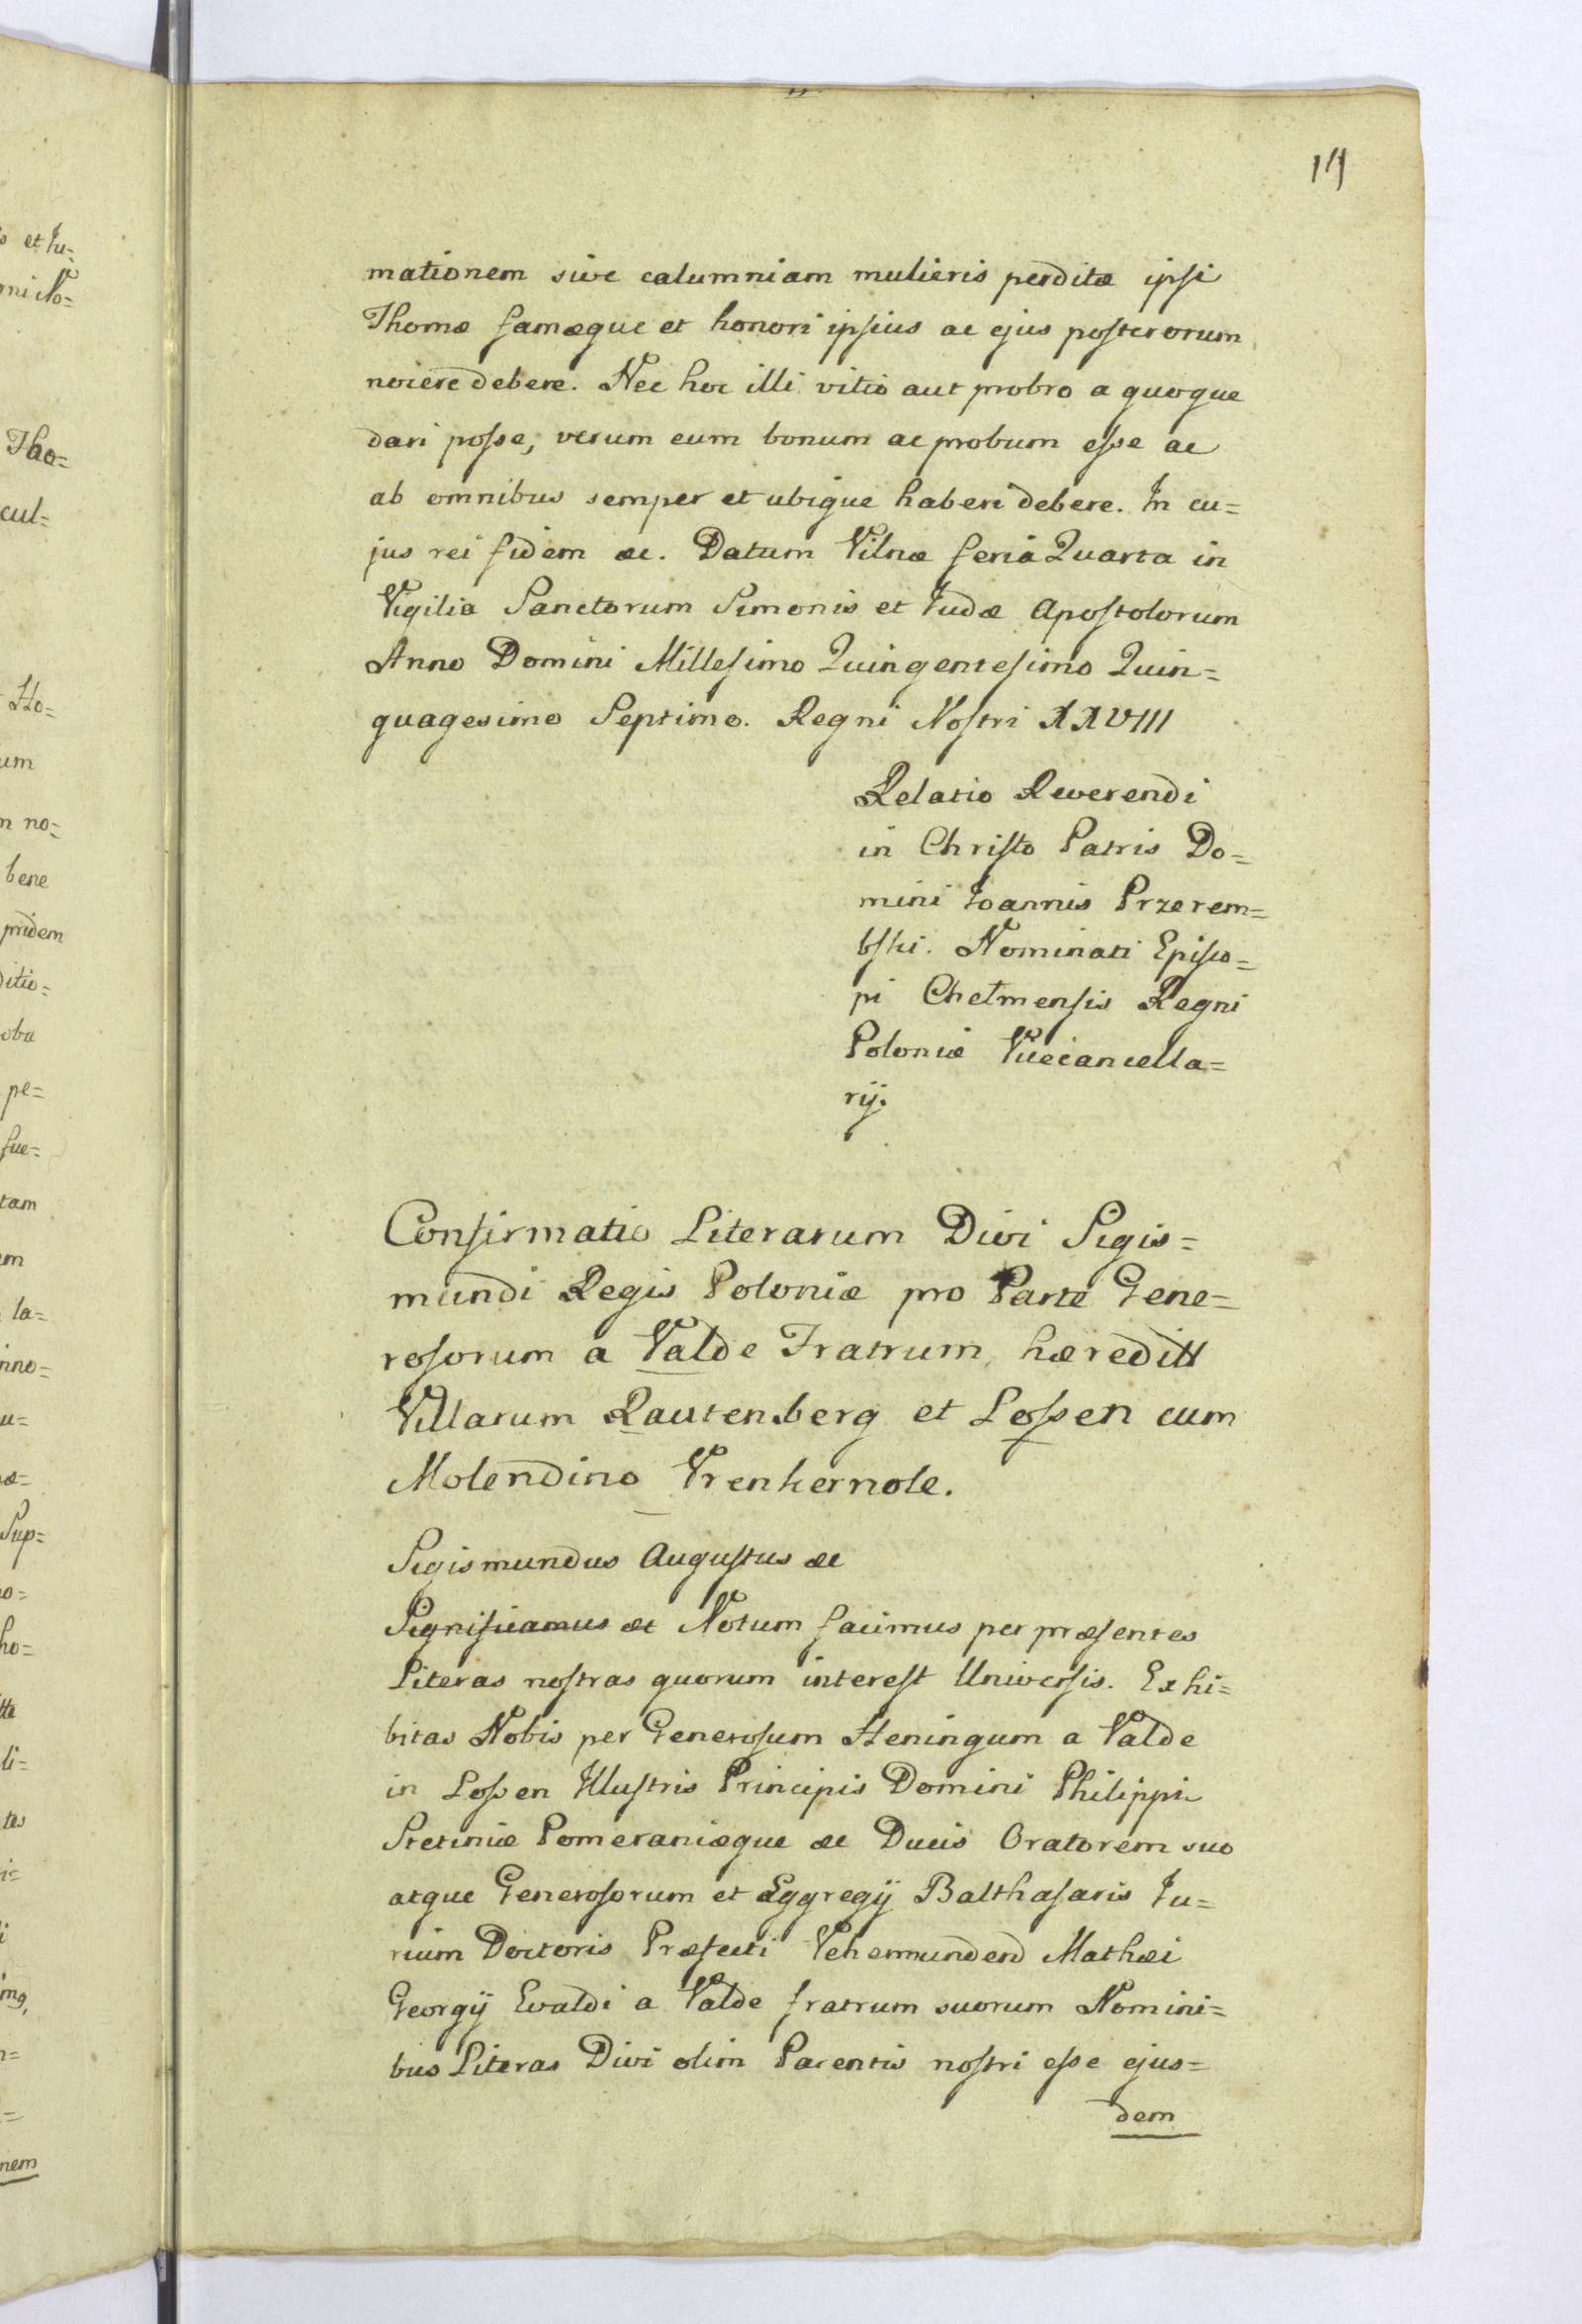 14
mationem sive calumniam mulieris perditæ ipsi
Thomæ famæque et honori ipsius ac ejus posterorum
nocere debere. Nec hoc illi vitio aut probro a quoque
dari posse, verum eum bonum ac probum esse ac
ab omnibus semper et ubique haberi debere. In cu=
jus rei fidem &c. Datum Vilnæ feria Quarta in
Vigilia Sanctorum Simonis et Judæ Apostolorum
Anno Domini Millesimo Quingentesimo Quin=
quagesimo Septimo. Regni Nostri XXVIII
Relatio Reverendi
in Christo Patris Do=
mini Joannis Przerem=
bski. Nominati Episco=
pi Chelmensis Regni
Poloniæ Vicecancella=
rij.
Confirmatio Literarum Divi Sigis=
mundi Regis Poloniæ pro Parte Gene=
rosorum a Valde Fratrum, hæreditt
Villarum Rautenberg et Lossen cum
Molendino Vrenkernole.
Sigismundus Augustus &c
Significamus &c Notum facimus per præsentes
Literas nostras quorum interest Universis. Exhi=
bitas Nobis per Generosum Heningum a Valde
in Lossen Illustris Principis Domini Philippi
Stetiniæ Pomeraniæque &c Ducis Oratorem suo
atque Generosorum et Eggregij Balthasaris Ju=
rium Doctoris Præfecti Vehermunden Mathæi
Georgij Evaldi a Valde fratrum suorum Nomini=
bus Literas Divi olim Parentis nostri esse ejus=
dem
et Ju=
Tho=
cul=
Ho=
um
no=
bene
pridem
ditio=
pe=
fue=
tam
em
la=
inno=
u=
Sup=
ho=
li=
tes
nem